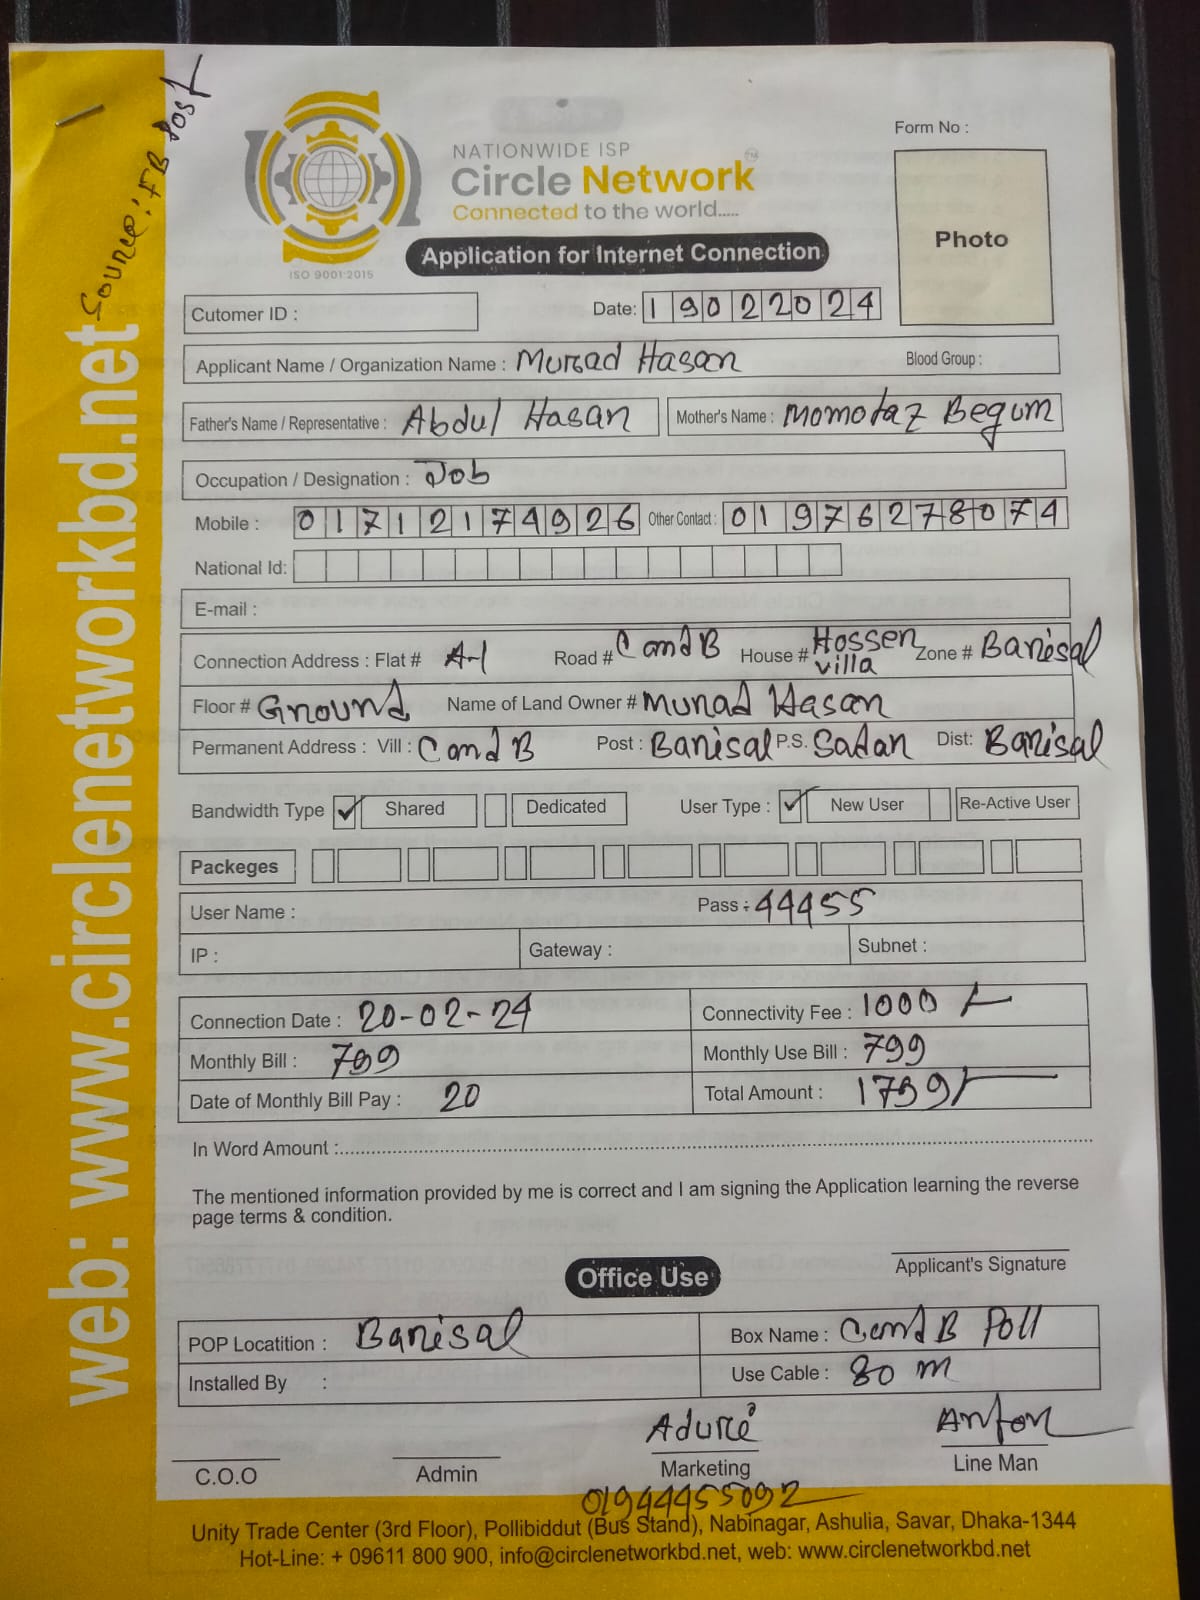 Source: FB Post
web: www.circlenetworkbd.net
Form No :
NATIONWIDE ISP
Circle Network TM
Connected to the world.....
ISO 9001:2015
Application for Internet Connection
Photo
Cutomer ID :
Date: 19022024
Applicant Name / Organization Name : Murad Hasan Blood Group :
Father's Name / Representative : Abdul Hasan Mother's Name : Momotaz Begum
Occupation / Designation : Job
Mobile : 01712174926 Other Contact : 01976278074
National Id:
E-mail :
Connection Address : Flat # A-1 Road # C and B House # Hossen villa Zone # Barisal
Floor # Ground Name of Land Owner # Murad Hasan
Permanent Address : Vill : C and B Post : Barisal P.S. Sadar Dist: Barisal
Bandwidth Type ✓ Shared Dedicated User Type : ✓ New User Re-Active User
Packeges
User Name : Pass : 44455
IP : Gateway : Subnet :
Connection Date : 20-02-24 Connectivity Fee : 1000/-
Monthly Bill : 799 Monthly Use Bill : 799
Date of Monthly Bill Pay : 20 Total Amount : 1799/-
In Word Amount :
The mentioned information provided by me is correct and I am signing the Application learning the reverse
page terms & condition.
Applicant's Signature
Office Use
POP Locatition : Barisal Box Name : C and B Poll
Installed By : Use Cable : 80 m
C.O.O Admin Marketing Line Man
01944455092
Unity Trade Center (3rd Floor), Pollibiddut (Bus Stand), Nabinagar, Ashulia, Savar, Dhaka-1344
Hot-Line: + 09611 800 900, info@circlenetworkbd.net, web: www.circlenetworkbd.net